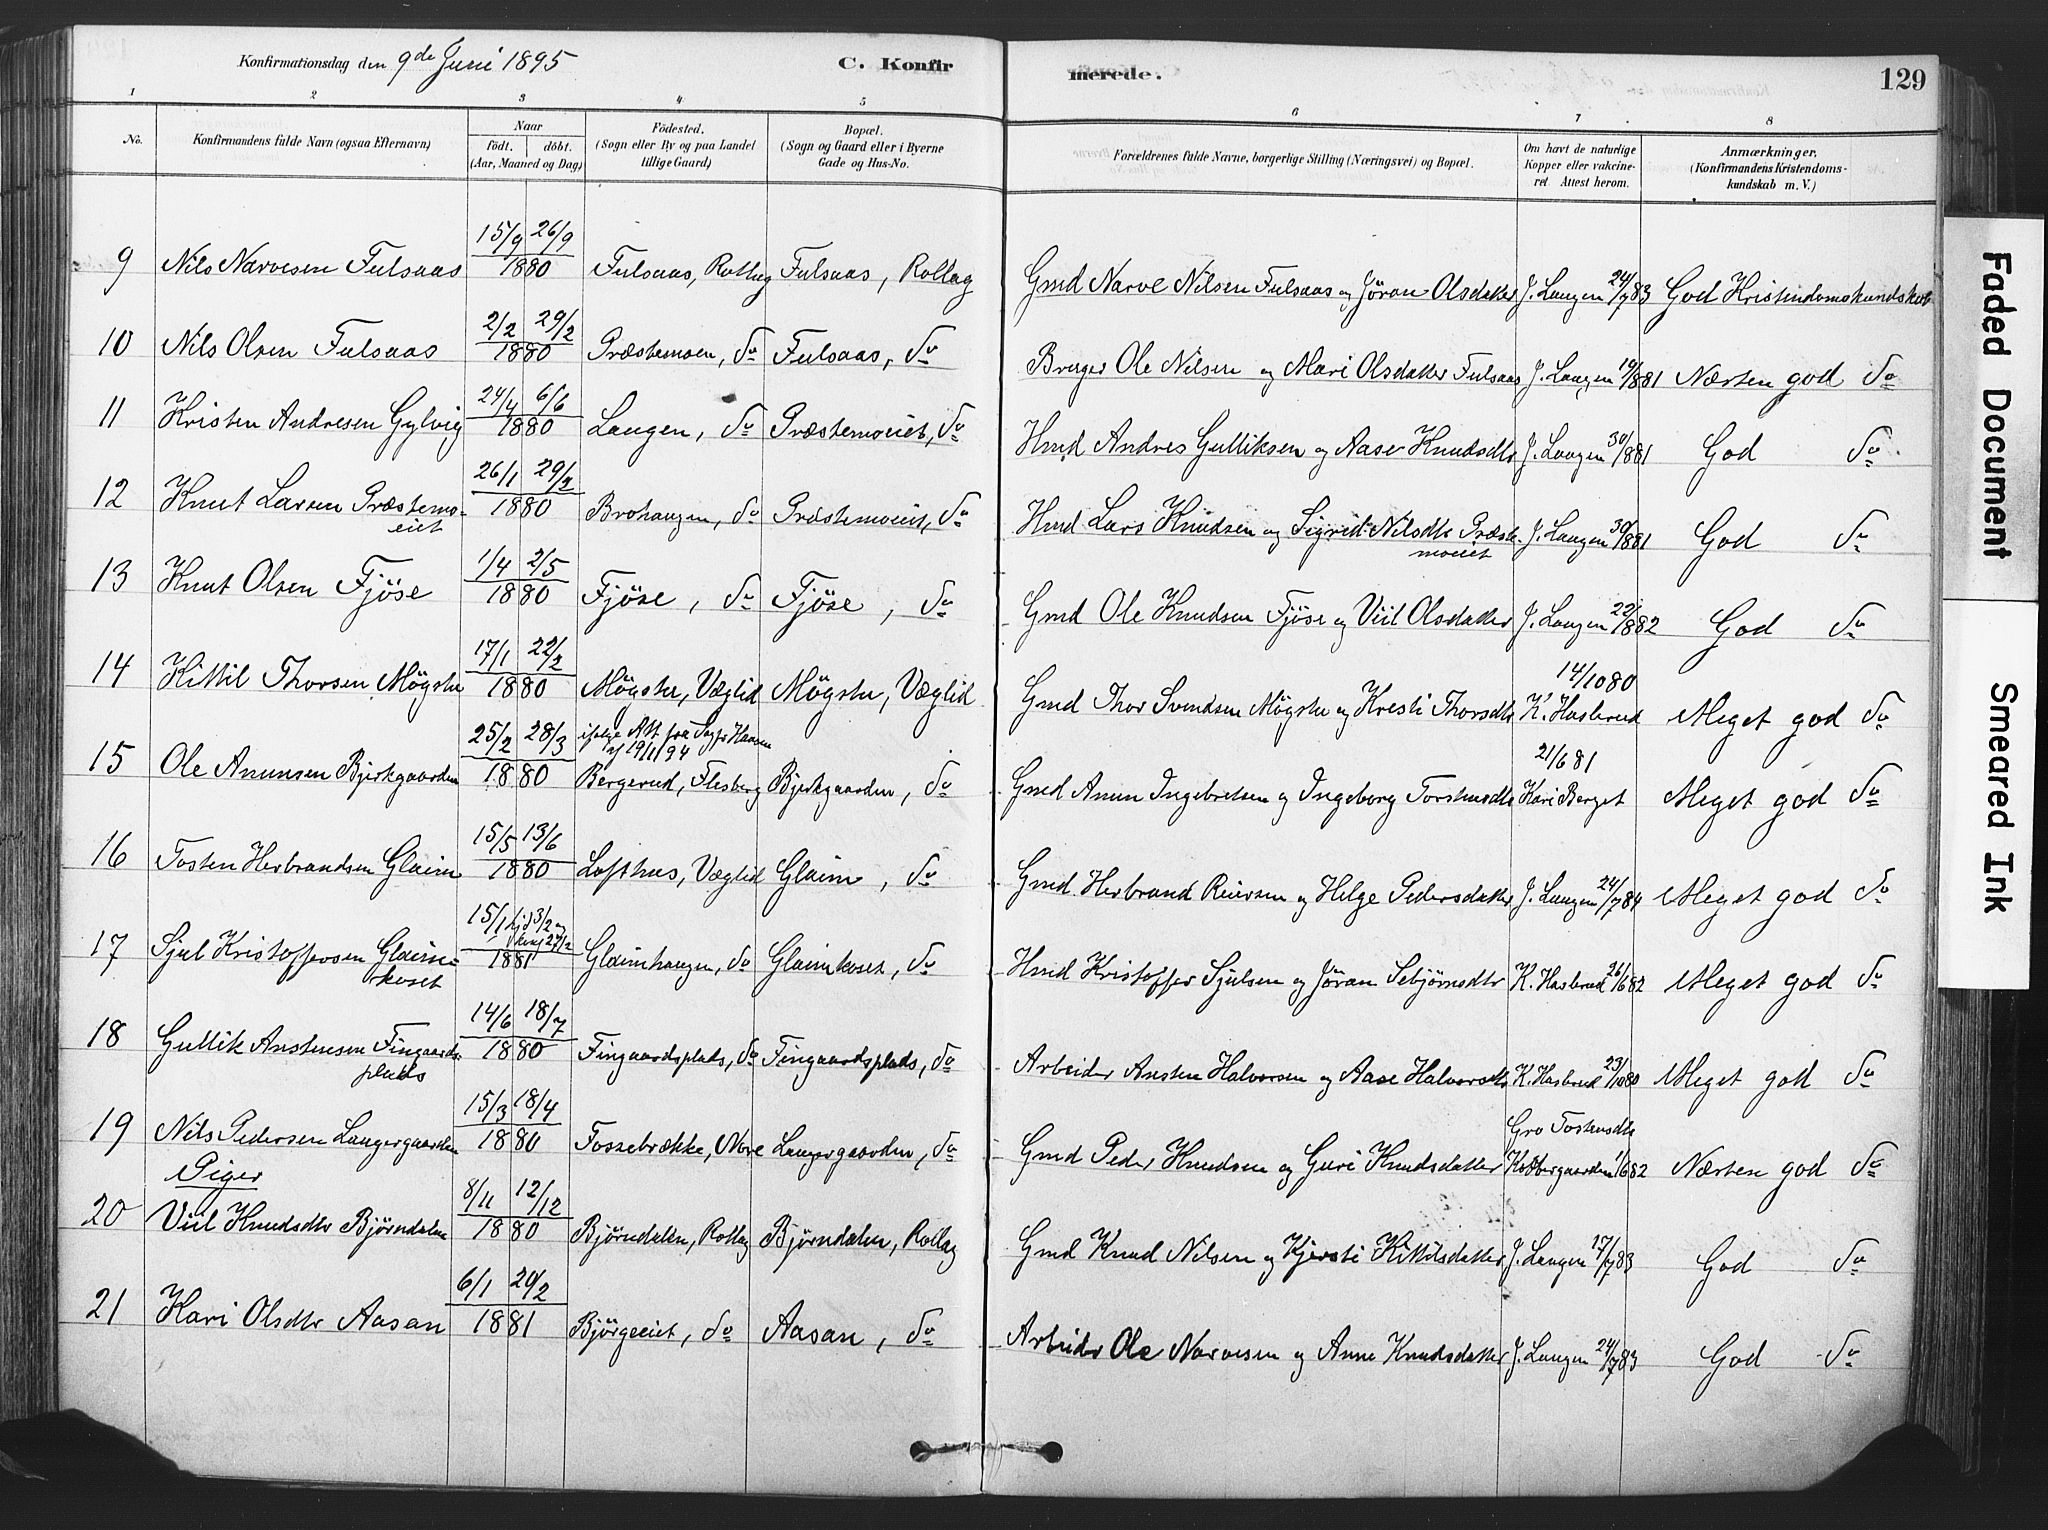 Konfirmationsdag den 9de Juni 1895 C. Konfirmerede. 129
1 2 3 4 5 6 7 8
No. Konfirmandens fulde Navn (ogsaa Efternavn) Naar født. døbt. (Aar, Maaned og Dag) Fødested. (Sogn eller By og paa Landet tillige Gaard) Bopæl. (Sogn og Gaard eller i Byerne Gade og Hus-No. Forældrenes fulde Navne, borgerlige Stilling (Næringsvei) og Bopæl. Om havt de naturlige Kopper eller vakcineret. Attest herom. Anmærkninger. (Konfirmandens Kristendomskundskab m. V.)
9 Nils Narvesen Fulsaas 15/9 26/9 1880 Fulsaas, Rollag Fulsaas, Rollag Gmd Narve Nilsen Fulsaas og Jöran Olsdatter J. Laugen 24/7 83 God Kristendomskundskab
10 Nils Olsen Fulsaas 2/2 29/2 1880 Præstemoen, Do Fulsaas, Do Bruger Ole Nilsen og Mari Olsdatter Fulsaas J. Laugen 19/8 81 Næsten god Do
11 Kristen Andresen Gylvig 24/4 6/6 1880 Laugen, Do Præstemoeiet, Do Hmd Andres Gulliksen og Aase Knudsdtr J. Laugen 30/8 81 God Do
12 Knut Larsen Præstemoeiet 26/1 29/2 1880 Brohaugen, Do Præstemoeiet, Do Hmd Lars Knudsen og Sigrid Nilsdtr Præstemoeiet J. Laugen 30/8 81 God Do
13 Knut Olsen Fjöse 1/4 2/5 1880 Fjöse, Do Fjöse, Do Gmd Ole Knudsen Fjöse og Viil Olsdatter J. Laugen 22/8 82 God Do
14 Kittil Thorsen Mögster 17/1 22/2 1880 Mögster, Væglid Mögster, Væglid Gmd Thor Svendsen Mögster og Kresti Thorsdtr 14/10 80 K. Hasbrud Meget god Do
15 Ole Anunsen Bjerkgaarden 25/2 28/3 1880 ifølge Att. fra Sogpr Hansen af 19/11 94 Bergerud, Flesberg Bjerkgaarden, Do Gmd Anun Ingebretsen og Ingeborg Torstensdtr 21/6 81 Kari Berget Meget god Do
16 Tosten Herbrandsen Glaim 15/5 13/6 1880 Lofthus, Væglid Glaim, Do Gmd. Herbrand Reiersen og Helge Pedersdatter J. Laugen 24/7 84 Meget god Do
17 Sjul Kristoffersen Glaimkoset 15/1 hjd 3/2 og 27/2 1881 Glaimhaugen, Do Glaimkoset, Do Hmd Kristoffer Sjulsen og Jöran Sebjörnsdtr K. Hasbrud 26/6 82 Meget god Do
18 Gullik Anstensen Fingaardsplads 14/6 18/7 1880 Fingaardsplads, Do Fingaardsplads, Do Arbeider Ansten Halvorsen og Aase Halvorsdtr K. Hasbrud 23/10 80 Meget god Do
19 Nils Pedersen Laugergaarden 15/3 18/4 1880 Fossebrække, Nore Laugergaarden, Do Gmd Peder Knudsen og Guri Knudsdatter Gro Tostensdtr Kobbergaarden 1/6 82 Næsten god Do
Piger
20 Viil Knudsdtr Björndalen 8/11 12/12 1880 Björndalen, Rollag Björndalen, Rollag Gmd Knud Nilsen og Kjersti Kittilsdatter J. Laugen 17/7 83 God Do
21 Kari Olsdtr Aasan 6/1 20/2 1881 Björgeeiet, Do Aasan, Do Arbeider Ole Narvesen og Anne Knudsdatter J. Laugen 24/7 83 God Do
Faded Document
Smeared Ink